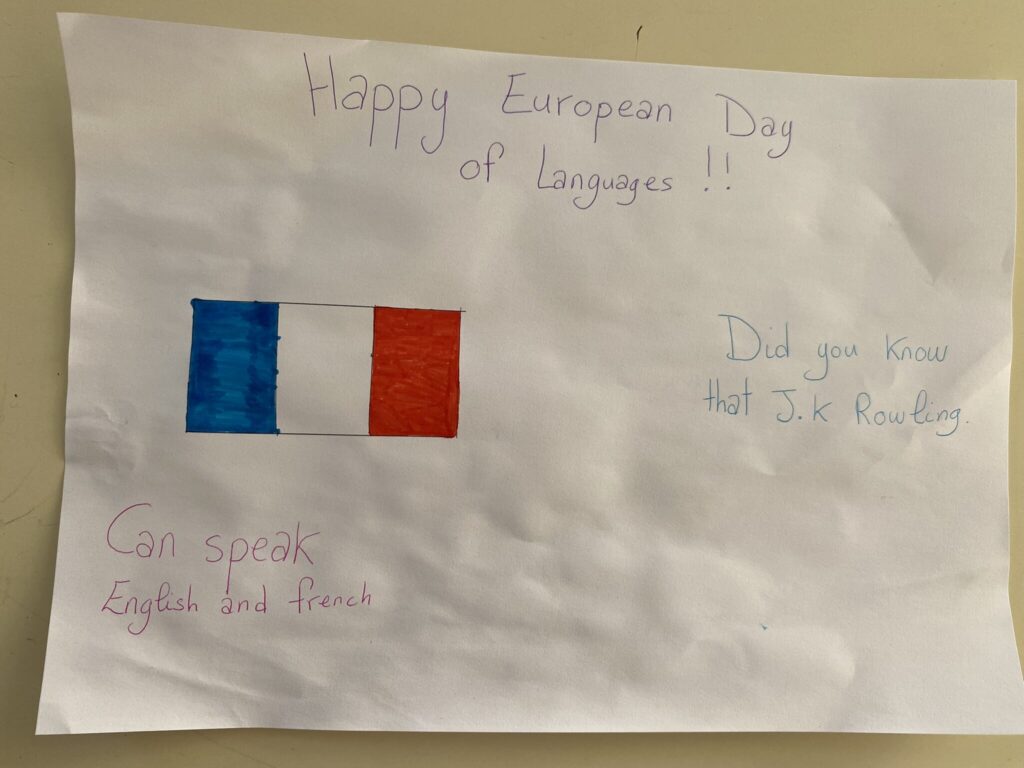 Happy European Day
of Languages !!
Did you know
that J.K Rowling.
Can speak
English and french